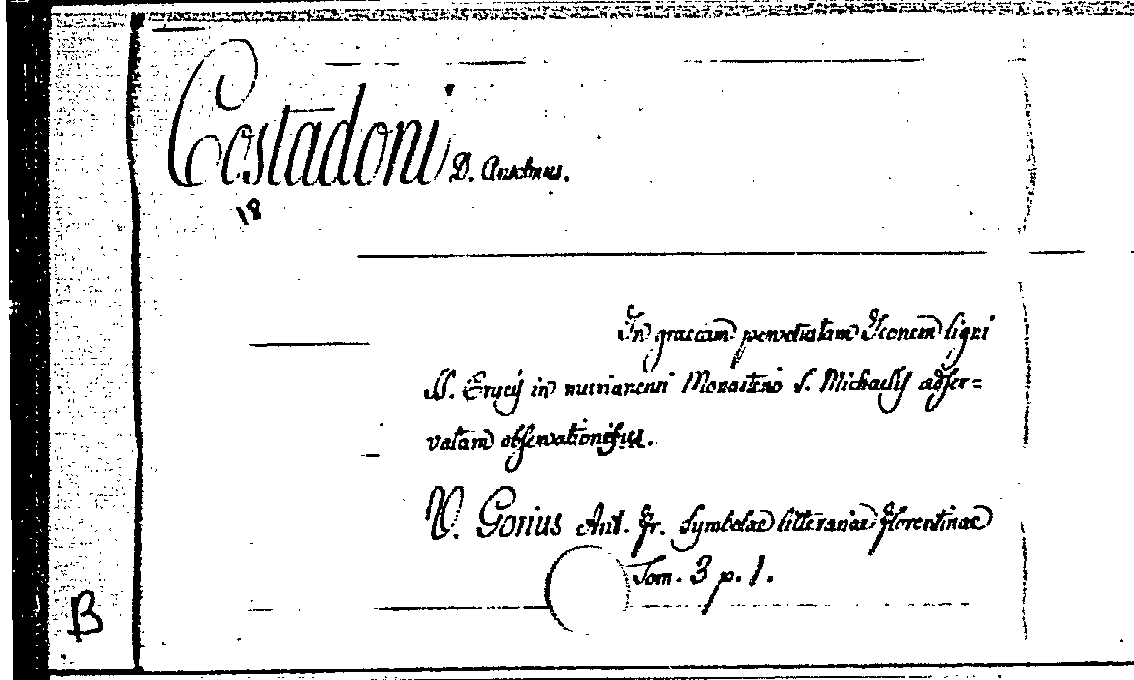 Costadoni D. Anselmus.
18
In graecam pervetustam Iconem ligni
SS. Crucis in murianensi Monasterio S. Michaelis adser=
vatam observationibus.
V. Gorius Ant. Fr. Symbolae litterariae florentinae
Tom. 3 p. 1.
B